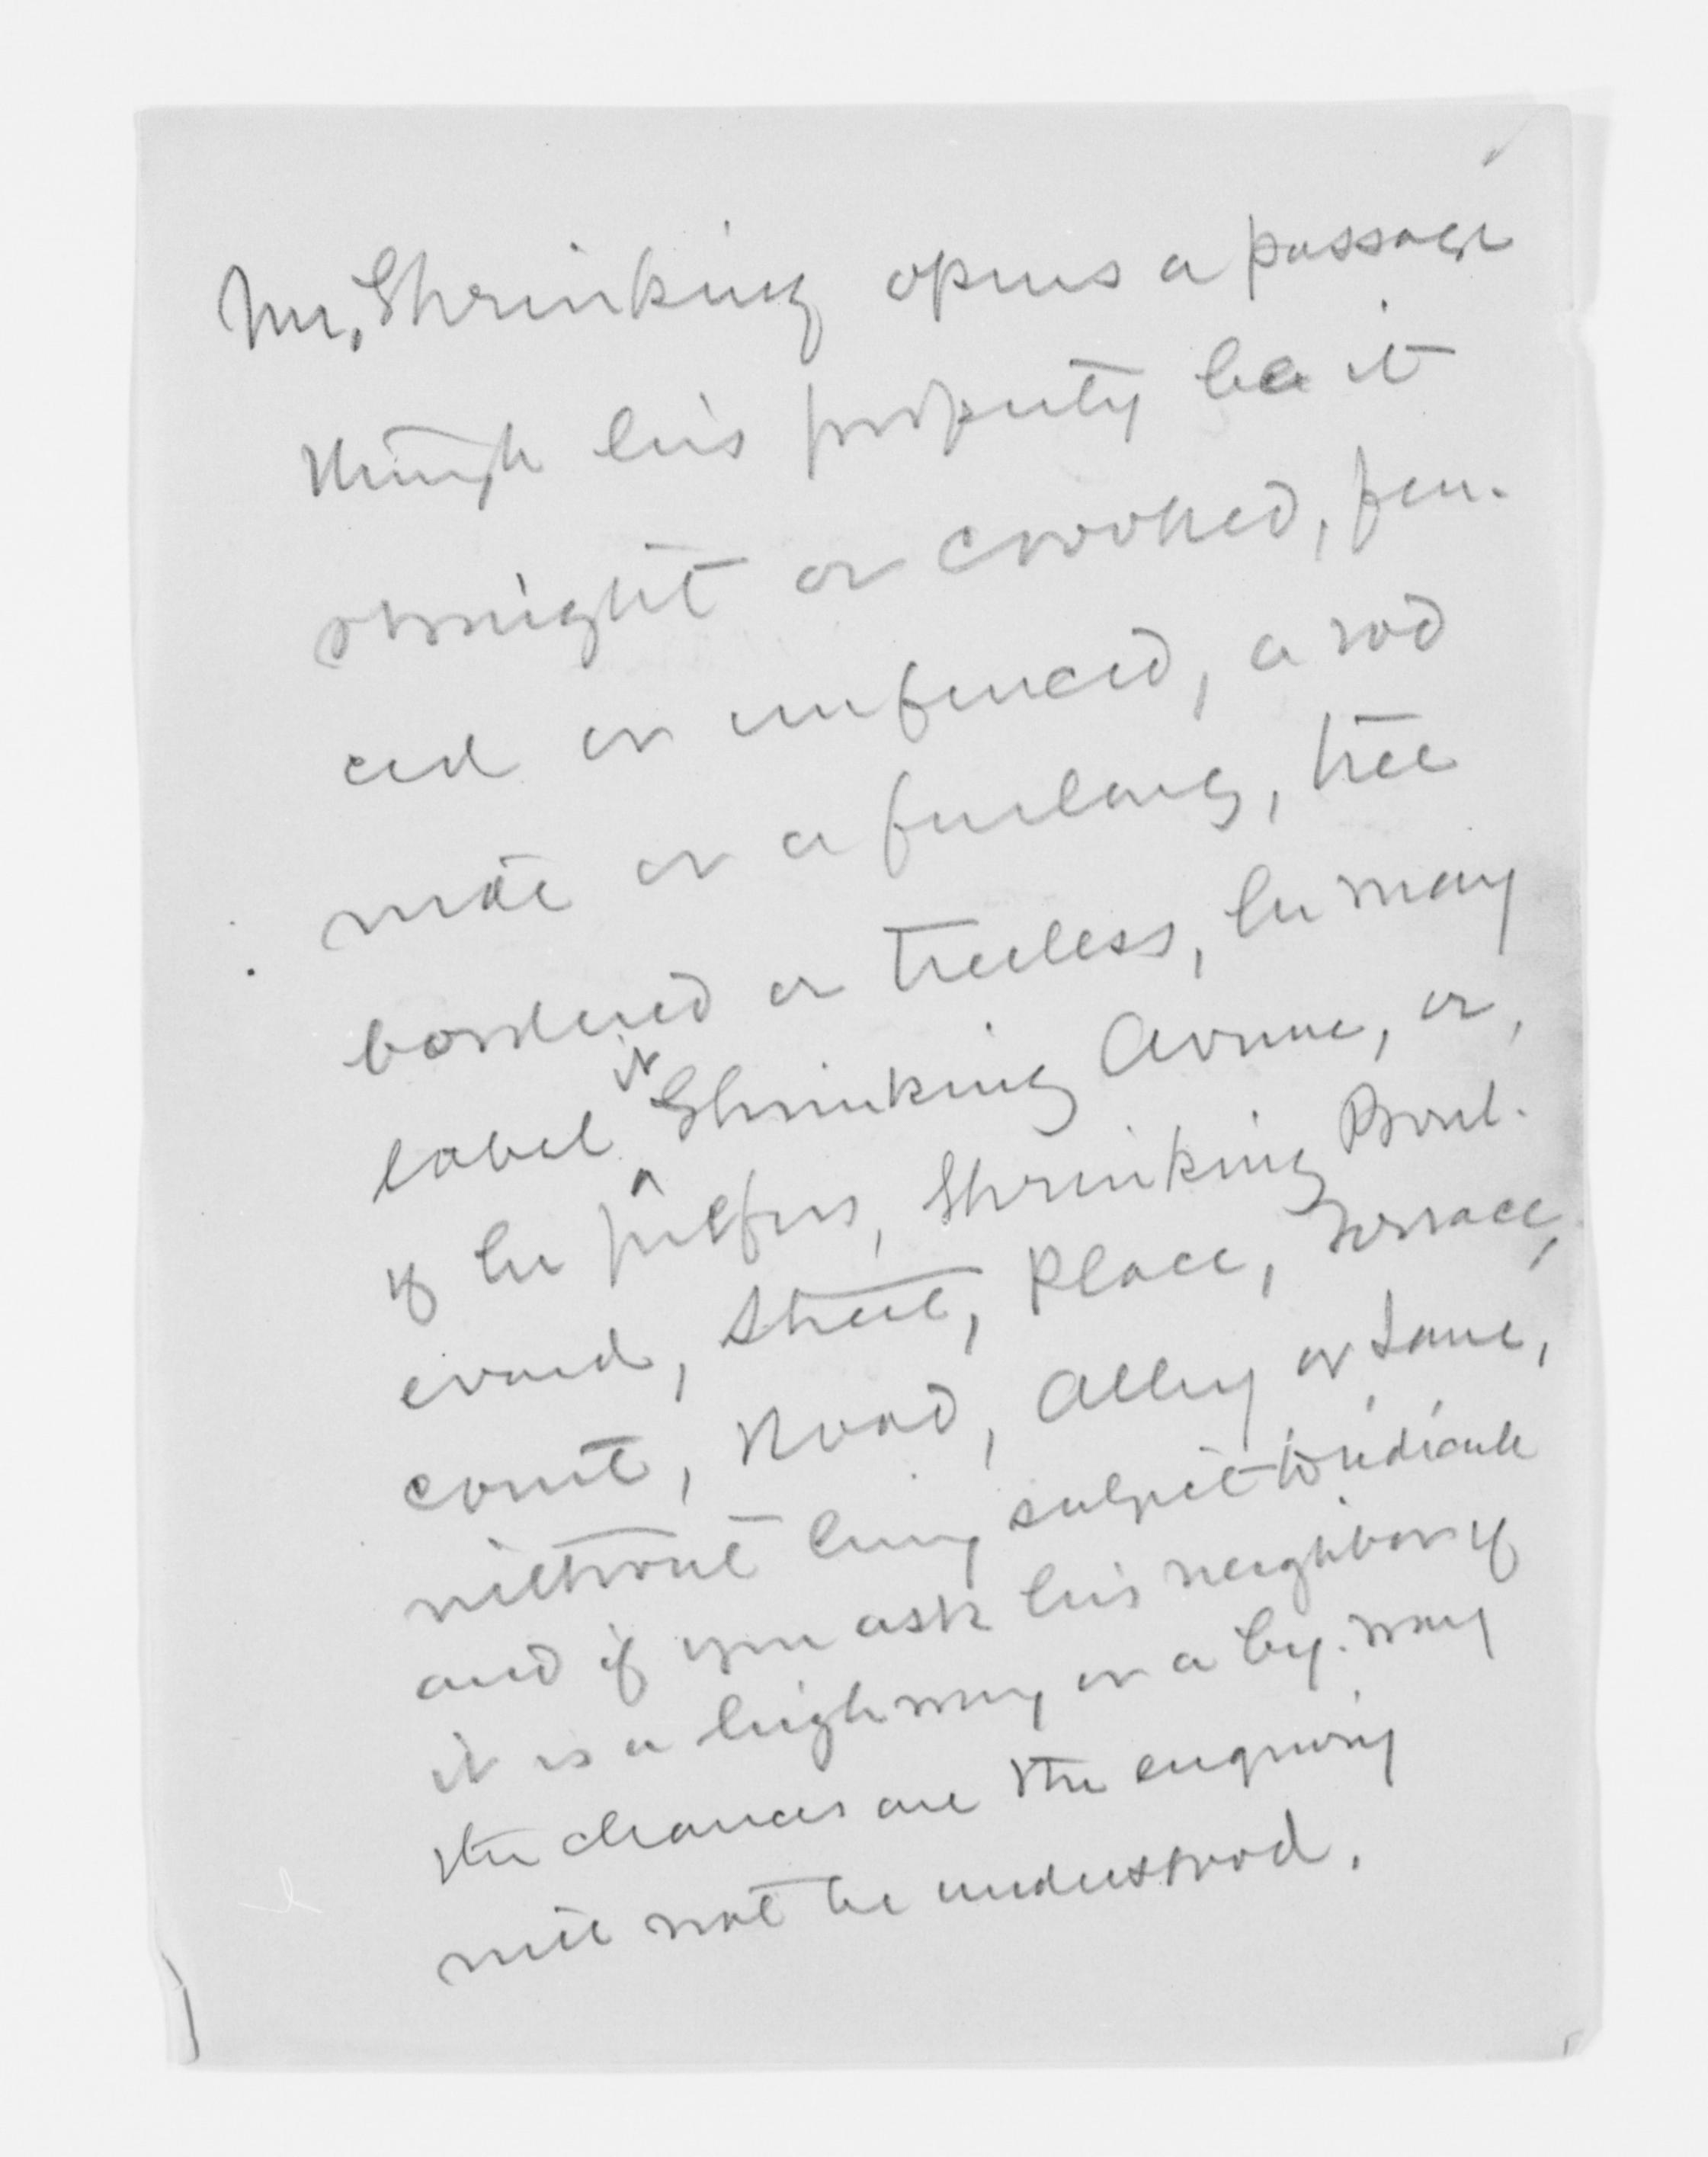 Mr. Shrinking opens a passage
through his property be it
straight or crooked, fen-
ced or unfenced, a rod
wide or a furlong, tree
bordered or treeless, he may
label it Shrinking Avenue, or,
if he prefers, Shrinking Boul-
evard, Street, Place, Terrace,
Court, Road, Alley or Lane,
without being subject to ridicule
and if you ask his neighbor if
it is a highway or a by-way
the chances are the enquiry
will not be understood.